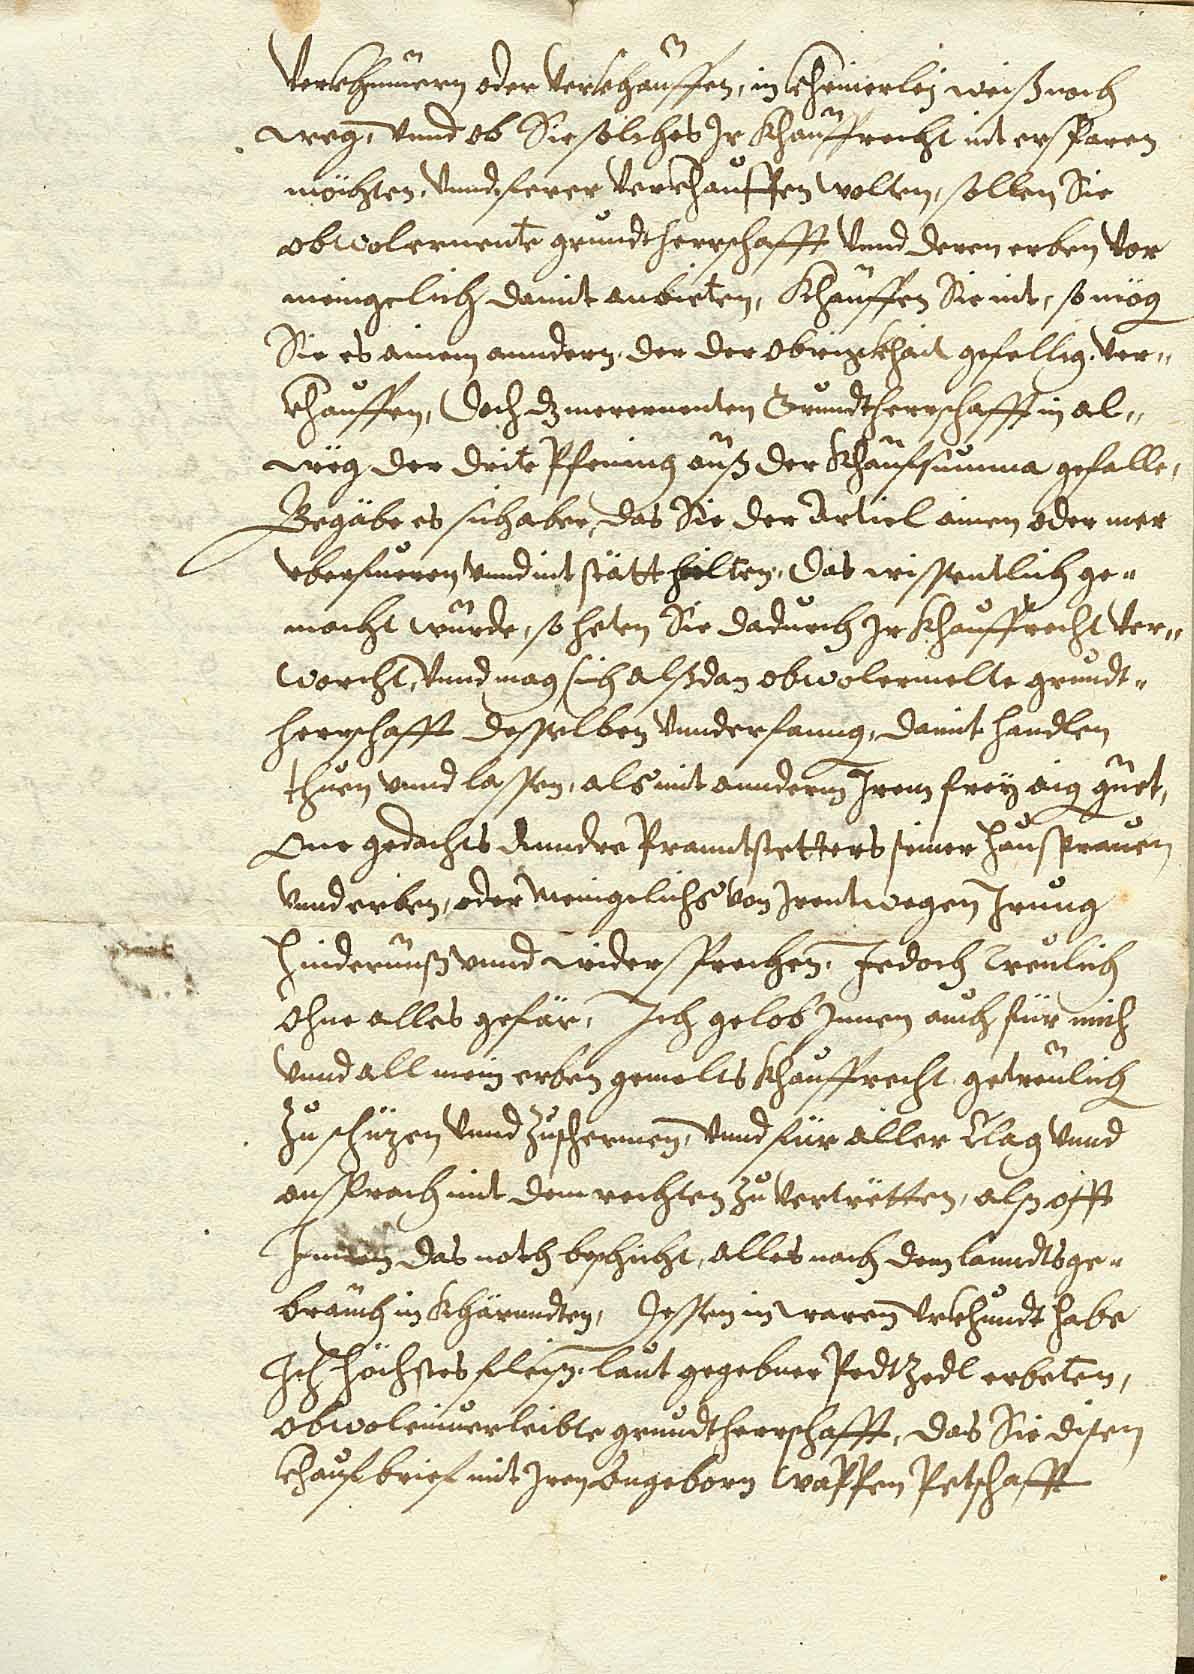 verkhumern oder verkhauffen, in kheinerley weiß noch
weg, vnnd ob Sie solches Ir Khauffrecht nit ersparen
möchten, vnnd ferer verkhauffen wolten, sollen Sie
obwolernente grundtherrschafft vnnd deren erben vor
meingelich damit anbieten, Khauffen Sie nit, so mög
Sie es ainem anndern, der der obrigkhait gefellig, ver„
khauffen, Doch dz merernenten Grundtherrschafft in al„
weg der drite Pfening auß der Khaufsumma gefalle,
Begäbe es sich aber, das Sie der Articl ainen oder mer
vberfueren vnnd nit stätt hielten, Das wissentlich ge„
macht würde, so heten Sie dadurch Ir Khauffrecht ver„
worcht, vnnd mag sich alßdan obwolermelte grundt„
herrschafft desselben vnnderfanng, damit handlen
thuen vnnd lassen, als mit anndern Irem frey aig guet,
One gedachts Anndre Pranntstetters seiner haußfrauen
vnnd erben, oder Meingelichs von Irentwegen Irrung
hindernuß vnnd widersprechen, Jedoch treulich
ohne alles gefär, Ich gelob Innen auch für mich
vnnd all mein erben gemelts Khauffrecht getreulich
zu schüzen vnnd zuschermen, vnnd für aller Clag vnnd
ansprach mit dem rechten zu vertretten, alß offt
Innen das noth beschicht, alles nach dem lanndtsge„
brauch in Khärnndten, Dessen in waren vrkhundt habe
Ich höchstes fleiß, laut gegebner Pedtzedl erbeten,
obwoleinuerleibte grundtherrschafft, das Sie disen
khaufbrief mit Iren Angeborn Wappen Petschafft